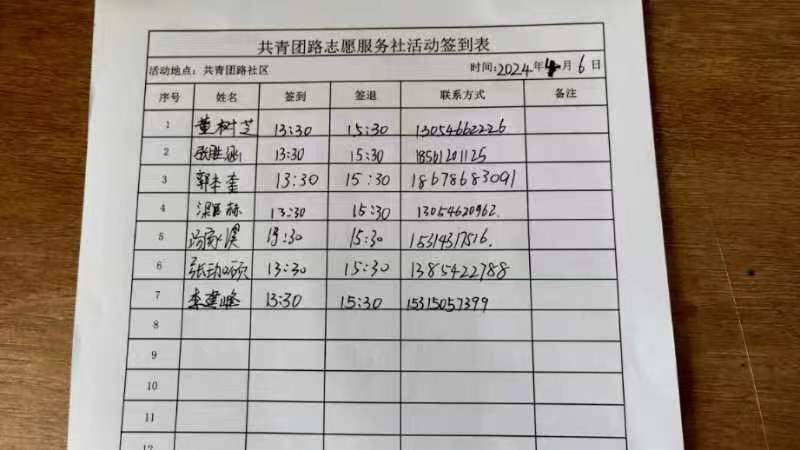 共青团路志愿服务社活动签到表
活动地点：共青团路社区 时间：2024年4月6日
序号 姓名 签到 签退 联系方式 备注
1 董树芝 13:30 15:30 13054662226
2 13:30 15:30 18561201125
3 郭本奎 13:30 15:30 18678683091
4 13:30 15:30 13054620962
5 13:30 15:30 15314317516.
6 13:30 15:30 1385422788
7 李建峰 13:30 15:30 15315057399
8
9
10
11
12